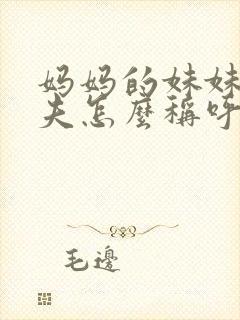 妈妈的妹妹
夫怎麼稱呼
毛邊